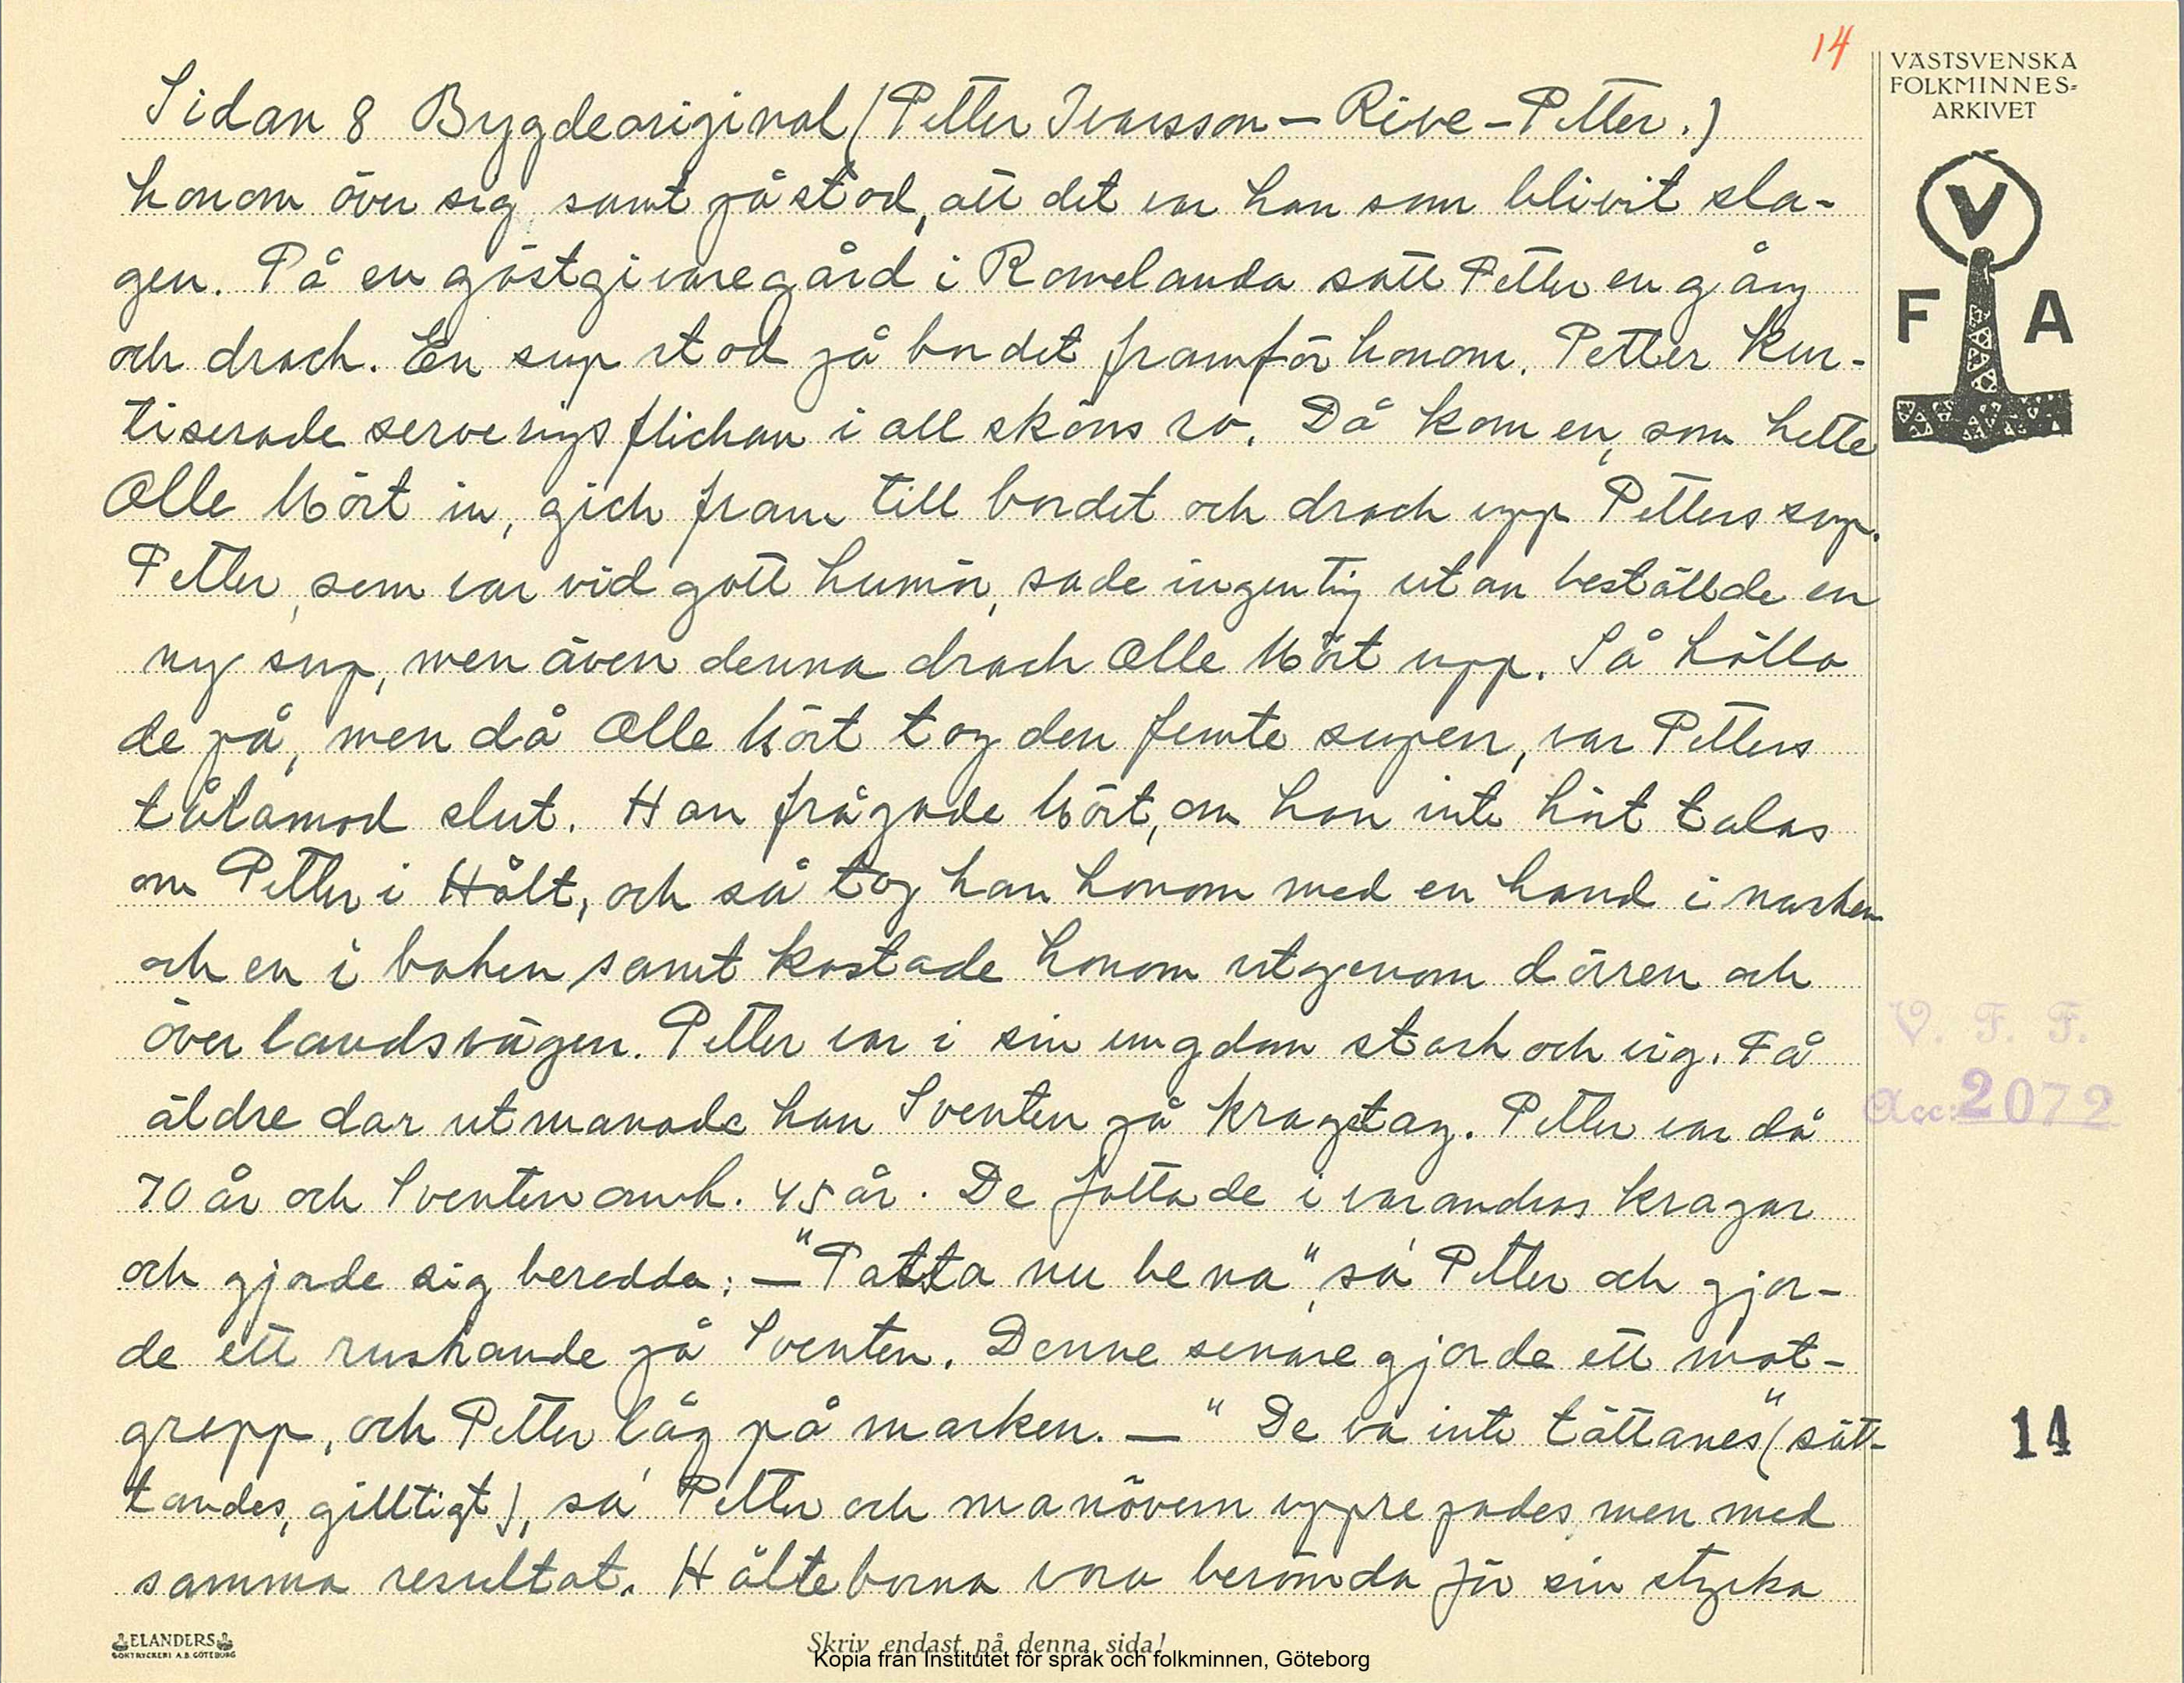 14
VÄSTSVENSKA
FOLKMINNES-
ARKIVET
V
F A
Sidan 8 Bygdeoriginal (Petter Ivarsson — Rive-Petter.)
honom över sig, samt påstod, att det var han som blivit sla-
gen. På en gästgivaregård i Romelanda satt Petter en gång
och drack. En sup stod på bordet framför honom. Petter kur-
tiserade serveringsflickan i all sköns ro. Då kom en, som hette
Olle Mört in, gick fram till bordet och drack upp Petters sup.
Petter, som var vid gott humör, sade ingenting utan beställde en
ny sup, men även denna drack Olle Mört upp. Så höllo
de på, men då Olle Mört tog den femte supen, var Petters
tålamod slut. Han frågade Mört, om han inte hört talas
om Petter i Hålt, och så tog han honom med en hand i nacken
och en i baken samt kastade honom utgenom dörren och
över landsvägen. Petter var i sin ungdom stark och vig. På
äldre dar utmanade han Sventen på kragtag. Petter var då
70 år och Sventen omk. 45 år. De fattade i varandras kragar
och gjorde sig beredda; — "Patta nu bena", sa' Petter och gjor-
de ett ruskande på Sventen. Denne senare gjorde ett mot-
grepp, och Petter låg på marken. — "De va inte tättanes" (sät-
tandes, gilltigt), sa' Petter och manövern upprepades, men med
samma resultat. Hålteborna voro berömda för sin styrka
V. F. F.
Acc: 2072
14
ELANDERS
BOKTRYCKERI A.B. GÖTEBORG
Skriv endast på denna sida!
Kopia från Institutet för språk och folkminnen, Göteborg